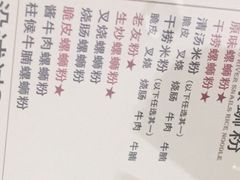 原味螺蛳粉★
干捞螺蛳粉★
清汤米粉（以下任选其一）
脆皮 叉烧 烧肠 牛肉 牛腩
干捞米粉（以下任选其一）
脆皮 叉烧 烧肠 牛肉 牛腩
老友粉★
生炒螺蛳粉★
叉烧螺蛳粉
烧肠螺蛳粉
脆皮螺蛳粉★
酱牛肉螺蛳粉
柱侯牛腩螺蛳粉
蛳粉
RIVER SNAILS RICE NOODLE